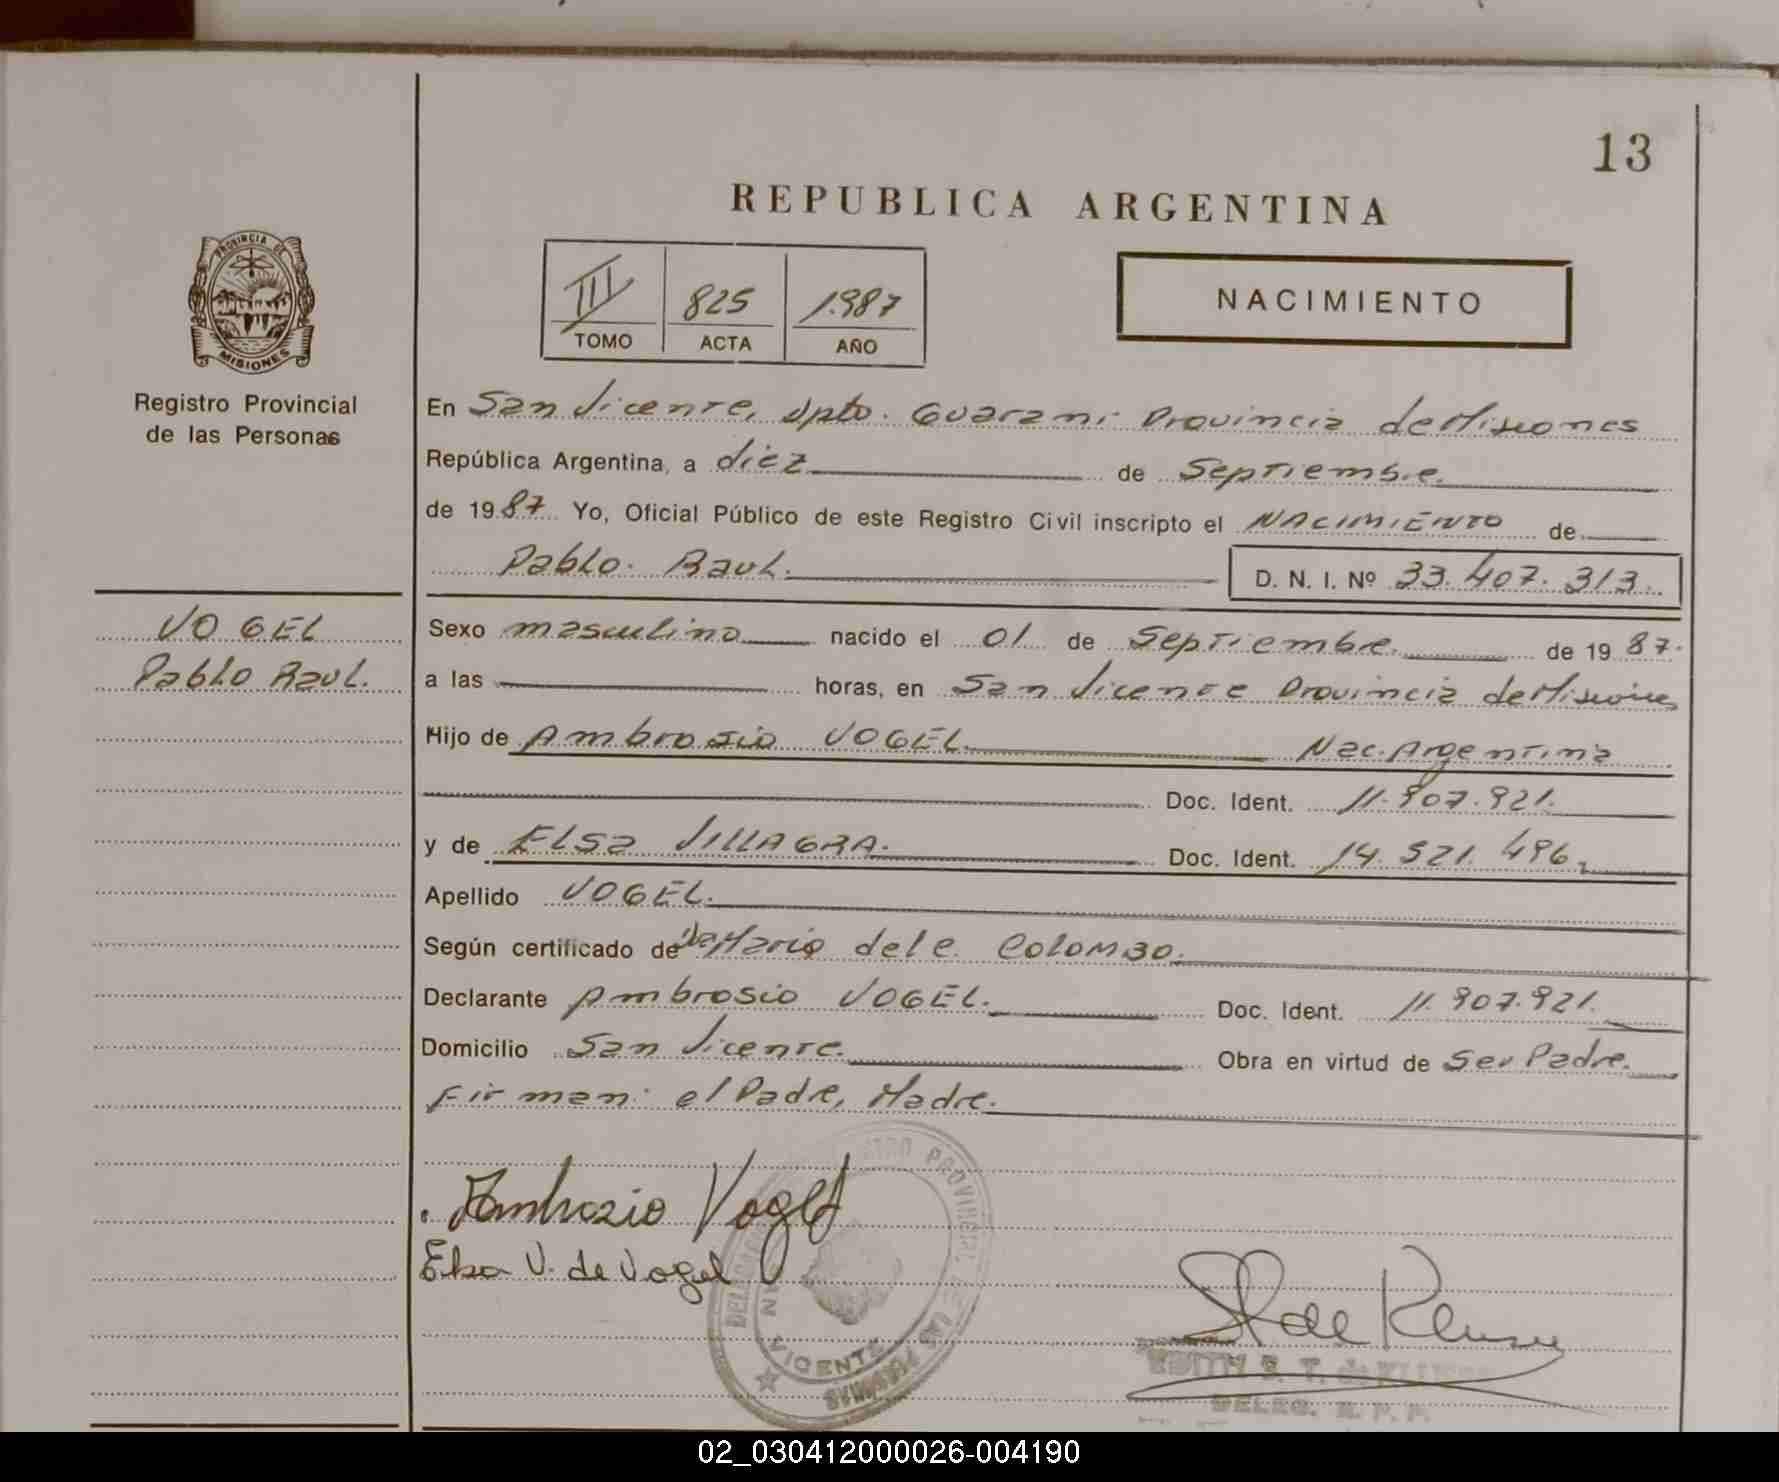 13
REPUBLICA ARGENTINA
PROVINCIA DE
MISIONES
Registro Provincial
de las Personas
III 825 1.987
TOMO ACTA AÑO
NACIMIENTO
En San Vicente, Dpto. Guarani Provincia de Misiones
República Argentina, a diez de Septiembre.
de 1987 Yo, Oficial Público de este Registro Civil inscripto el NACIMIENTO de
Pablo Raul. D. N. I. Nº 33.407.313.
VOGEL
Pablo Raul.
Sexo masculino nacido el 01 de Septiembre. de 1987.
a las horas, en San Vicente Provincia de Misiones
Hijo de Ambrosio VOGEL Nac. Argentina
Doc. Ident. 11.907.921.
y de ELSA VILLAGRA. Doc. Ident. 14.521.496
Apellido VOGEL.
Según certificado de Maria del C. COLOMBO.
Declarante Ambrosio VOGEL. Doc. Ident. 11.907.921.
Domicilio San Vicente. Obra en virtud de Ser Padre.
Firman: el Padre, Madre.
Ambrozio Vogel
Elsa V. de Vogel
PROVINCIAL DE LAS PERSONAS
VICENTE
EDITH S. T. de
DELEG. R. P. P.
02_030412000026-004190